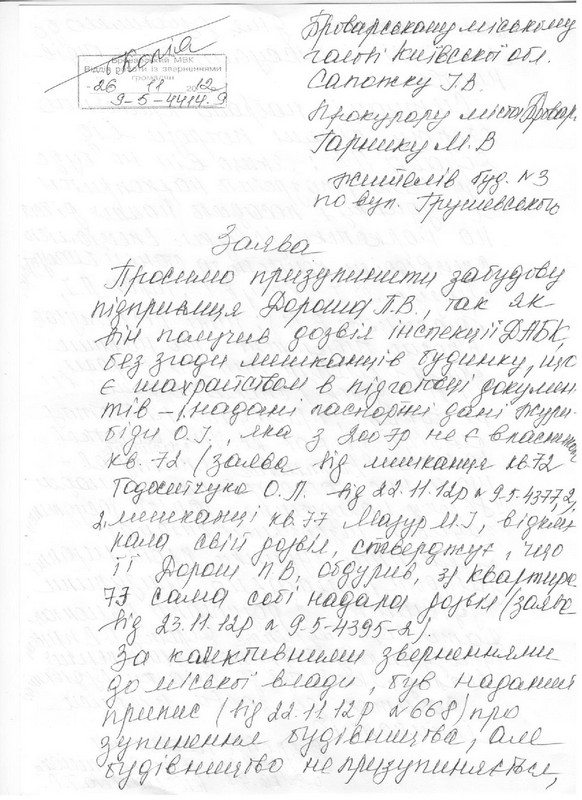 Копія
Броварський МВК
Відділ роботи із зверненнями
громадян
26 11 2012
9-5-4414.9
Броварському міському
голові Київської обл.
Сапожку І.В.
Прокурору міста Бровари
Гарнику М.В
жителів буд. №3
по вул. Грушевського
Заява
Просимо призупинити забудову
підприємця Дороша П.В., так як
він получив дозвіл інспекції ДАБК,
без згоди мешканців будинку, що
є шахрайством в підготовці докумен
тів – 1. надані паспортні дані Жури
біди О.І., яка з 2007р не є власником
кв. 72 (заява від мешканця кв.72
О.П. від 22.11.12р № 9.5-4377,2),
2. мешканці кв. 77 Мазур М.І, відкли
кала свій дозвіл, стверджує, що
її Дорош П.В, обдурив, з) квартира
77 сама собі надала дозвіл (заява
від 23.11.12р № 9.5-4395-2).
За колективними зверненнями
до міської влади, був наданий
припис (від 22.11.12р №668) про
зупинення будівництва, але
будівництво не призупиняється,